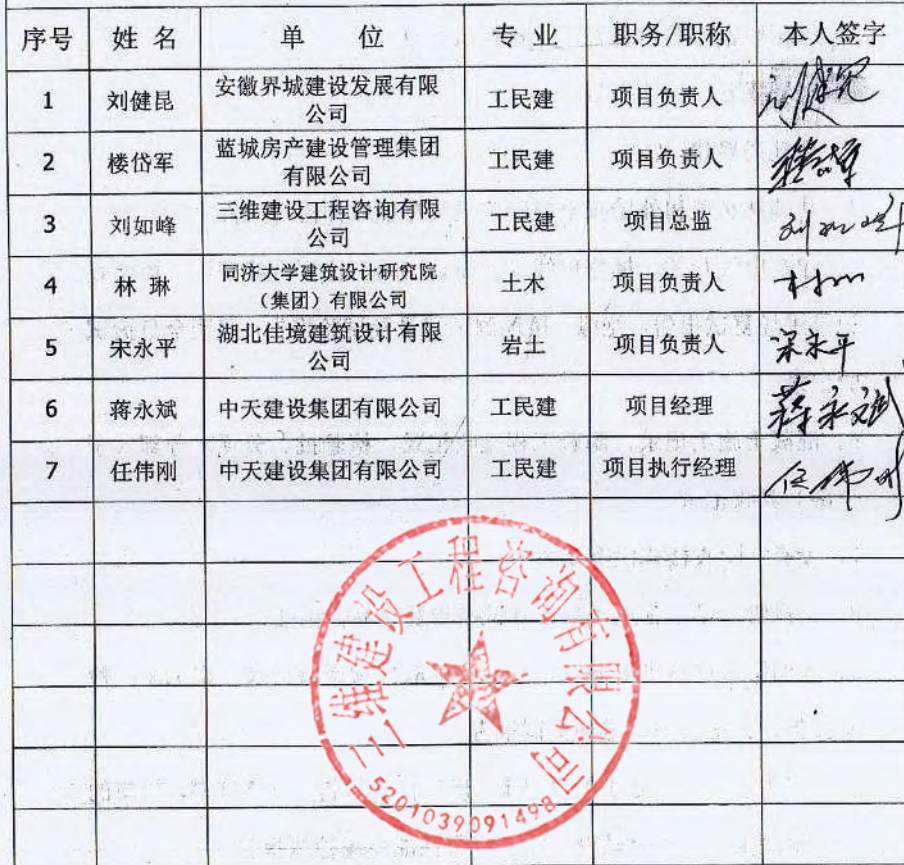 序号 姓名 单位 专业 职务/职称 本人签字
1 刘健昆 安徽界城建设发展有限 工民建 项目负责人 刘健昆
公司
2 楼岱军 蓝城房产建设管理集团 工民建 项目负责人 楼岱军
有限公司
3 刘如峰 三维建设工程咨询有限 工民建 项目总监 刘如峰
公司
4 林琳 同济大学建筑设计研究院 土木 项目负责人 林琳
（集团）有限公司
5 宋永平 湖北佳境建筑设计有限 岩土 项目负责人 宋永平
公司
6 蒋永斌 中天建设集团有限公司 工民建 项目经理 蒋永斌
7 任伟刚 中天建设集团有限公司 工民建 项目执行经理 任伟刚
三维建设工程咨询有限公司
5201039091498